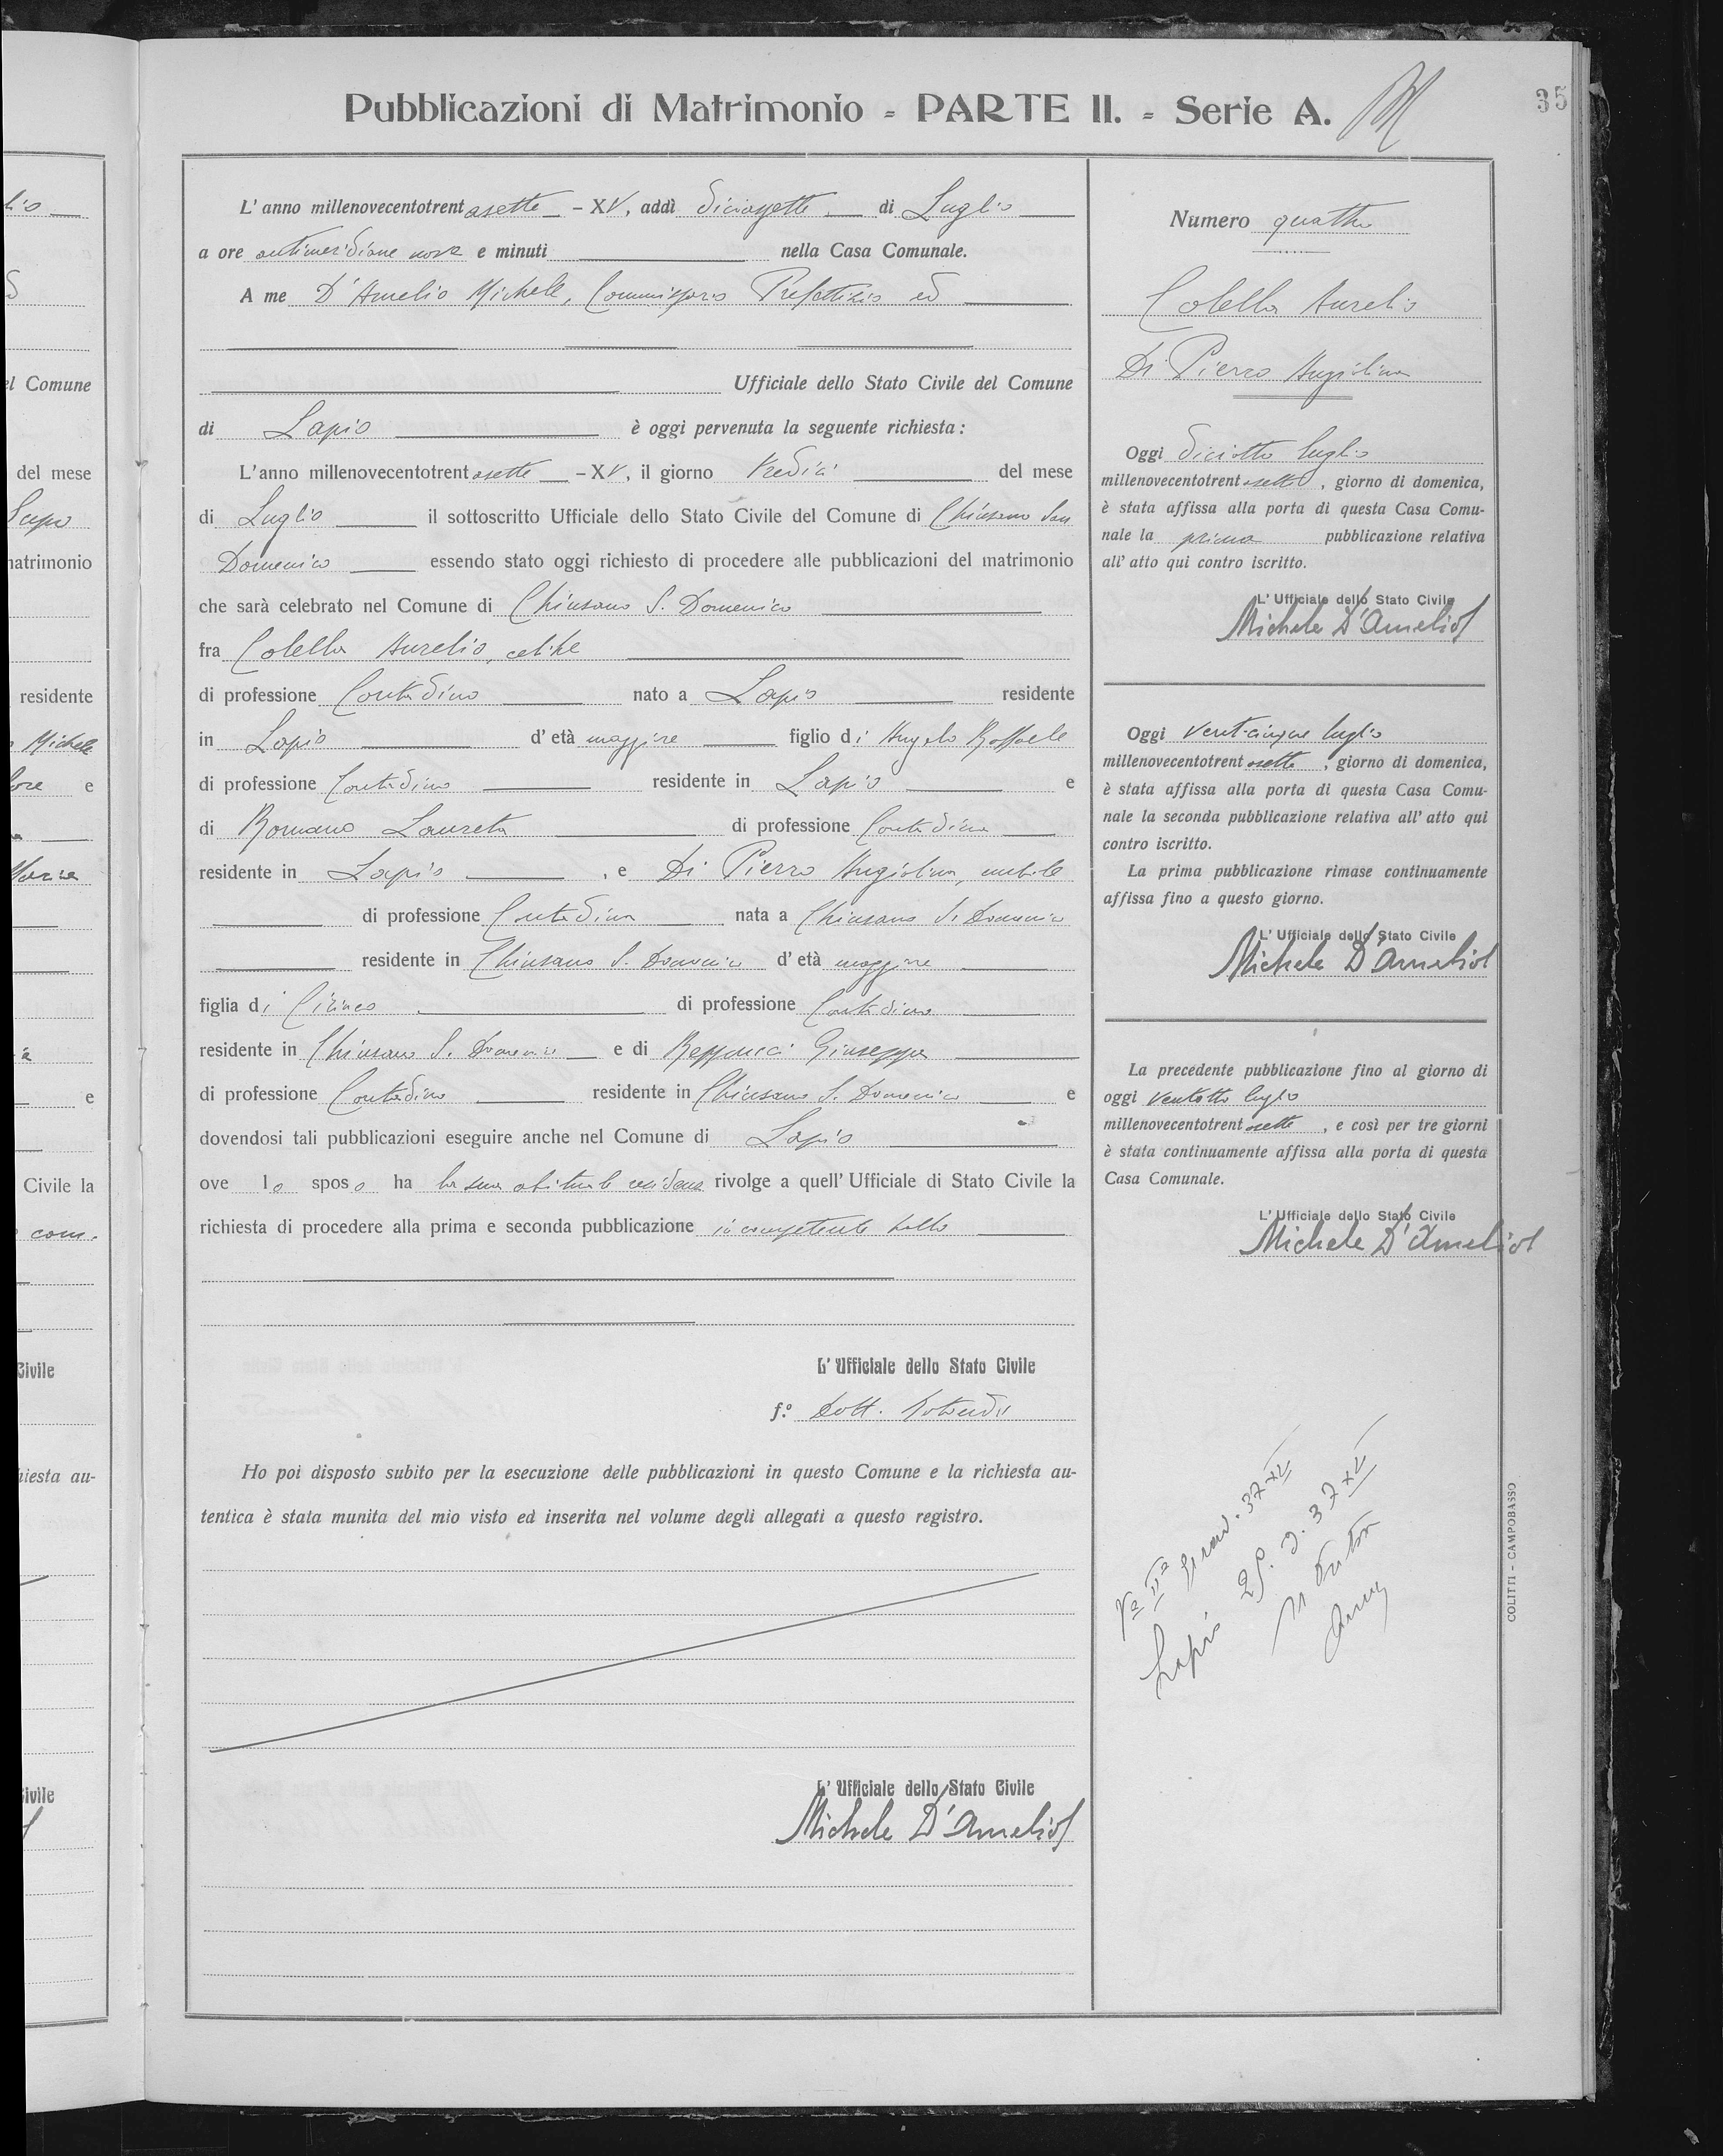 Pubblicazioni di Matrimonio - PARTE II. - Serie A.
35
L' anno millenovecentotrentasette - XV, addì diciassette di Luglio
a ore antimeridiane nove e minuti nella Casa Comunale.
A me D'Amelio Michele, Commissario Prefettizio ed
Ufficiale dello Stato Civile del Comune
di Lapio è oggi pervenuta la seguente richiesta:
L'anno millenovecentotrentasette - XV, il giorno tredici del mese
di Luglio il sottoscritto Ufficiale dello Stato Civile del Comune di Chiusano San
Domenico essendo stato oggi richiesto di procedere alle pubblicazioni del matrimonio
che sarà celebrato nel Comune di Chiusano S. Domenico
fra Colella Aurelio, celibe
di professione Contadino nato a Lapio residente
in Lapio d' età maggiore figlio di Angelo Raffaele
di professione Contadino residente in Lapio e
di Romano Laureta di professione Contadina
residente in Lapio , e Di Pierro Angiolina, nubile
di professione Contadina nata a Chiusano S. Domenico
residente in Chiusano S. Domenico d' età maggiore
figlia di Cirineo di professione Contadino
residente in Chiusano S. Domenico e di Giuseppa
di professione Contadina residente in Chiusano S. Domenico e
dovendosi tali pubblicazioni eseguire anche nel Comune di Lapio
ove lo sposo ha la sua abituale residenza rivolge a quell' Ufficiale di Stato Civile la
richiesta di procedere alla prima e seconda pubblicazione
L' Ufficiale dello Stato Civile
f.º Dott.
Ho poi disposto subito per la esecuzione delle pubblicazioni in questo Comune e la richiesta au-
tentica è stata munita del mio visto ed inserita nel volume degli allegati a questo registro.
L' Ufficiale dello Stato Civile
Michele D'Amelio
Numero quattro
Colella Aurelio
Di Pierro Angiolina
Oggi diciotto luglio
millenovecentotrentasette, giorno di domenica,
è stata affissa alla porta di questa Casa Comu-
nale la prima pubblicazione relativa
all' atto qui contro iscritto.
L' Ufficiale dello Stato Civile
Michele D'Amelio
Oggi venticinque luglio
millenovecentotrentasette, giorno di domenica,
è stata affissa alla porta di questa Casa Comu-
nale la seconda pubblicazione relativa all' atto qui
contro iscritto.
La prima pubblicazione rimase continuamente
affissa fino a questo giorno.
L' Ufficiale dello Stato Civile
Michele D'Amelio
La precedente pubblicazione fino al giorno di
oggi ventotto luglio
millenovecentotrentasette, e così per tre giorni
è stata continuamente affissa alla porta di questa
Casa Comunale.
L' Ufficiale dello Stato Civile
Michele D'Amelio
Lapio
COLITTI - CAMPOBASSO
lio
el Comune
del mese
matrimonio
residente
Michele
e
e
Civile la
com.
Civile
hiesta au-
ivile